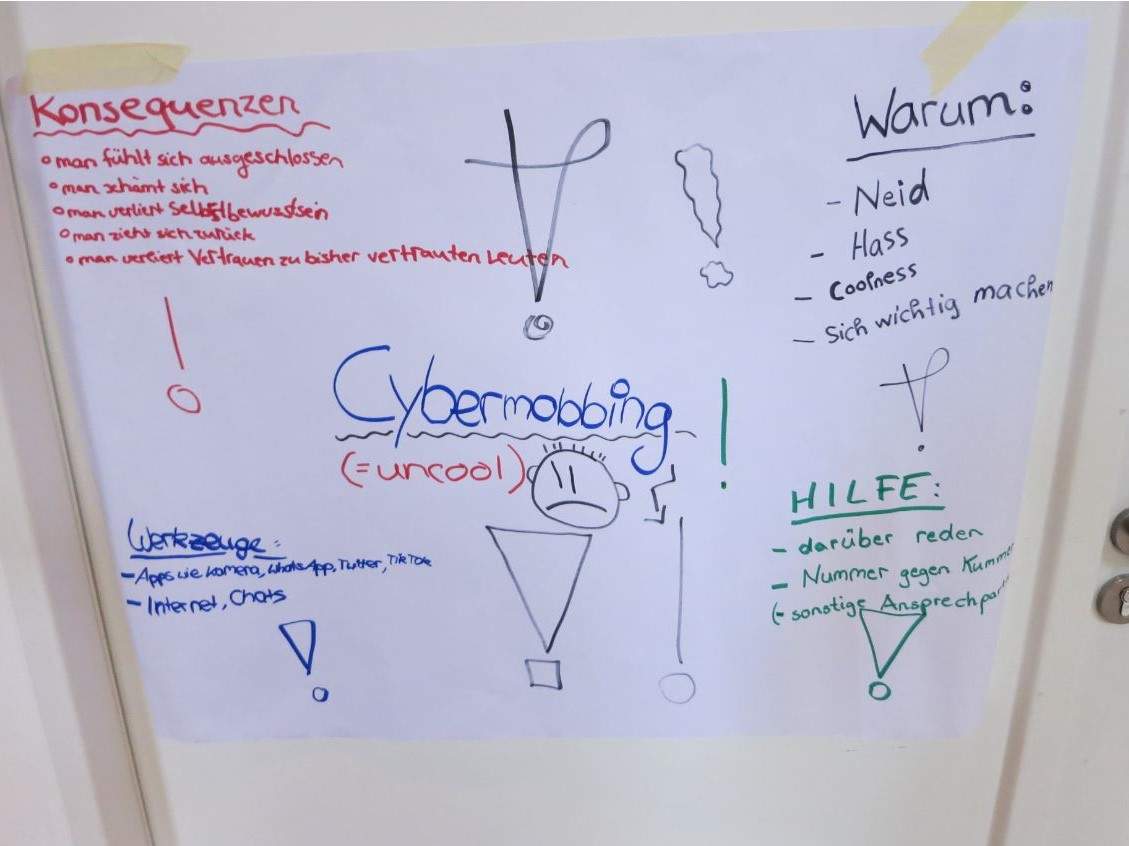 Konsequenzen
° man fühlt sich ausgeschlossen
° man schämt sich
° man verliert Selbstbewusstsein
° man zieht sich zurück
° man verliert Vertrauen zu bisher vertrauten Leuten
Warum:
- Neid
- Hass
- Coolness
- Sich wichtig machen
Cybermobbing
(= uncool)
Werkzeuge:
- Apps wie Kamera, WhatsApp, Twitter, TikTok
- Internet, Chats
HILFE:
- darüber reden
- Nummer gegen Kummer
(- sonstige